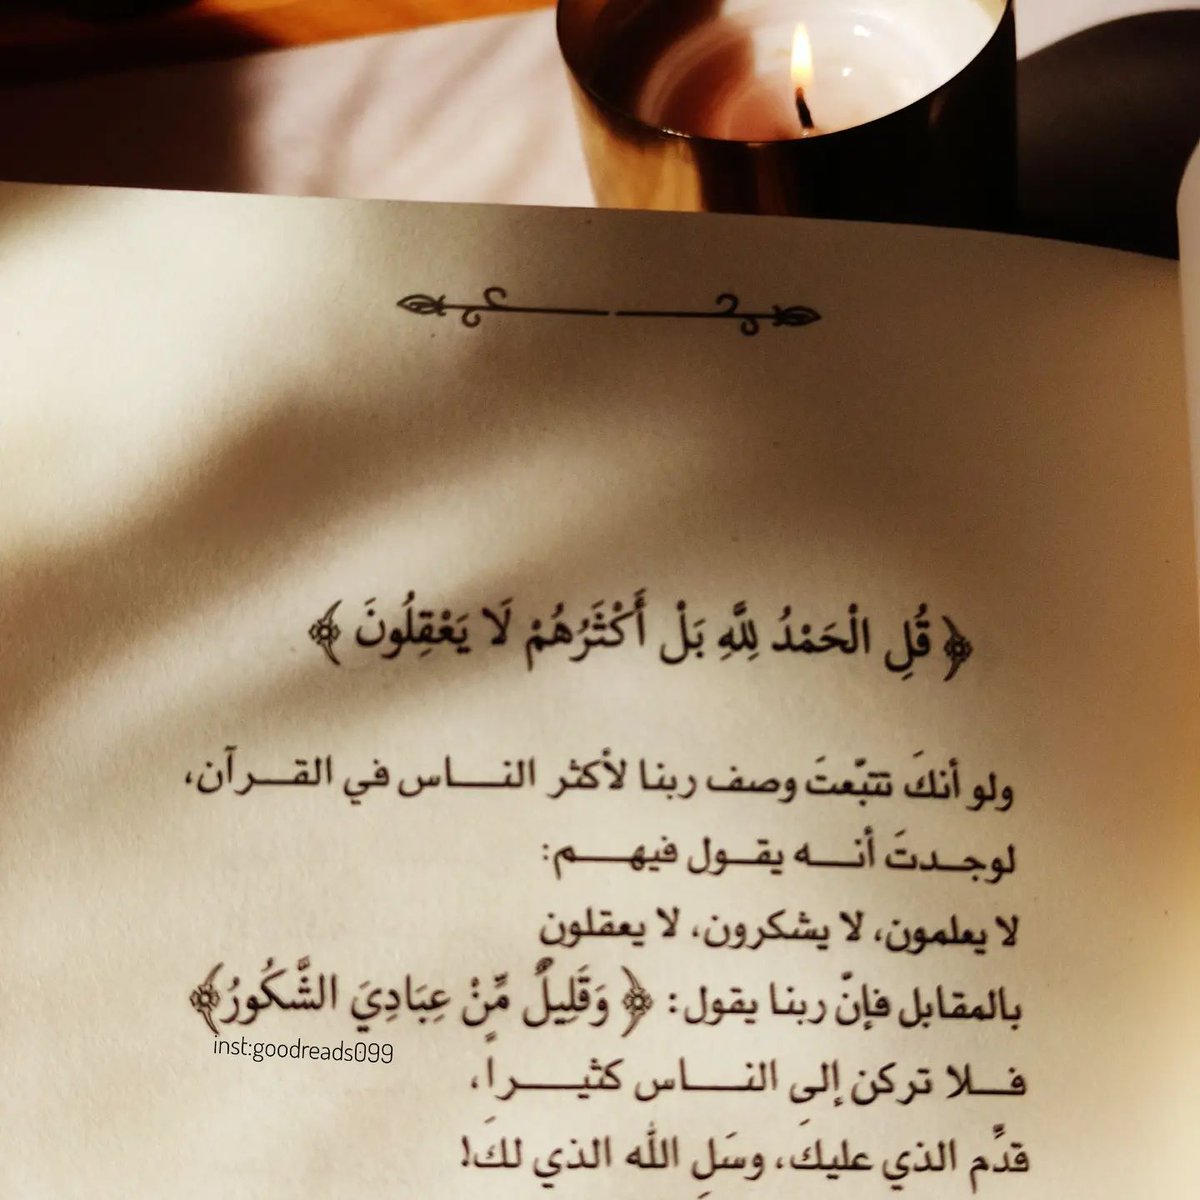 ﴿ قُلِ الْحَمْدُ لِلَّهِ بَلْ أَكْثَرُهُمْ لَا يَعْقِلُونَ ﴾
ولو أنكَ تتبّعتَ وصف ربنا لأكثر النـــاس في القـــرآن،
لوجـدتَ أنـــه يقـــول فيهـــم:
لا يعلمون، لا يشكرون، لا يعقلون
بالمقابل فإنّ ربنا يقول: ﴿ وَقَلِيلٌ مِّنْ عِبَادِيَ الشَّكُورُ ﴾
inst:goodreads099
فـــلا تركن إلى النـــاس كثيـــراً،
قدِّم الذي عليكَ، وسَلِ الله الذي لكَ!